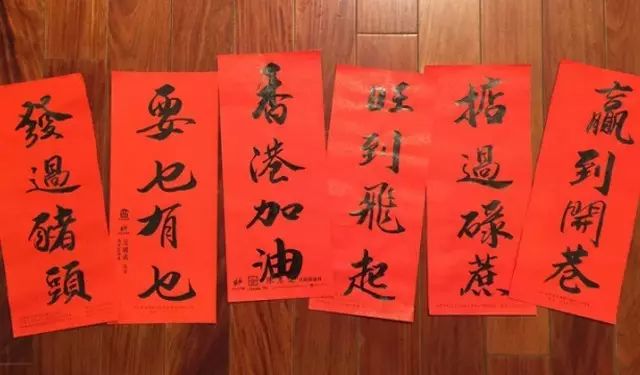 發過豬頭
要乜有乜
香港加油
旺到飛起
掂過碌蔗
贏到開巷